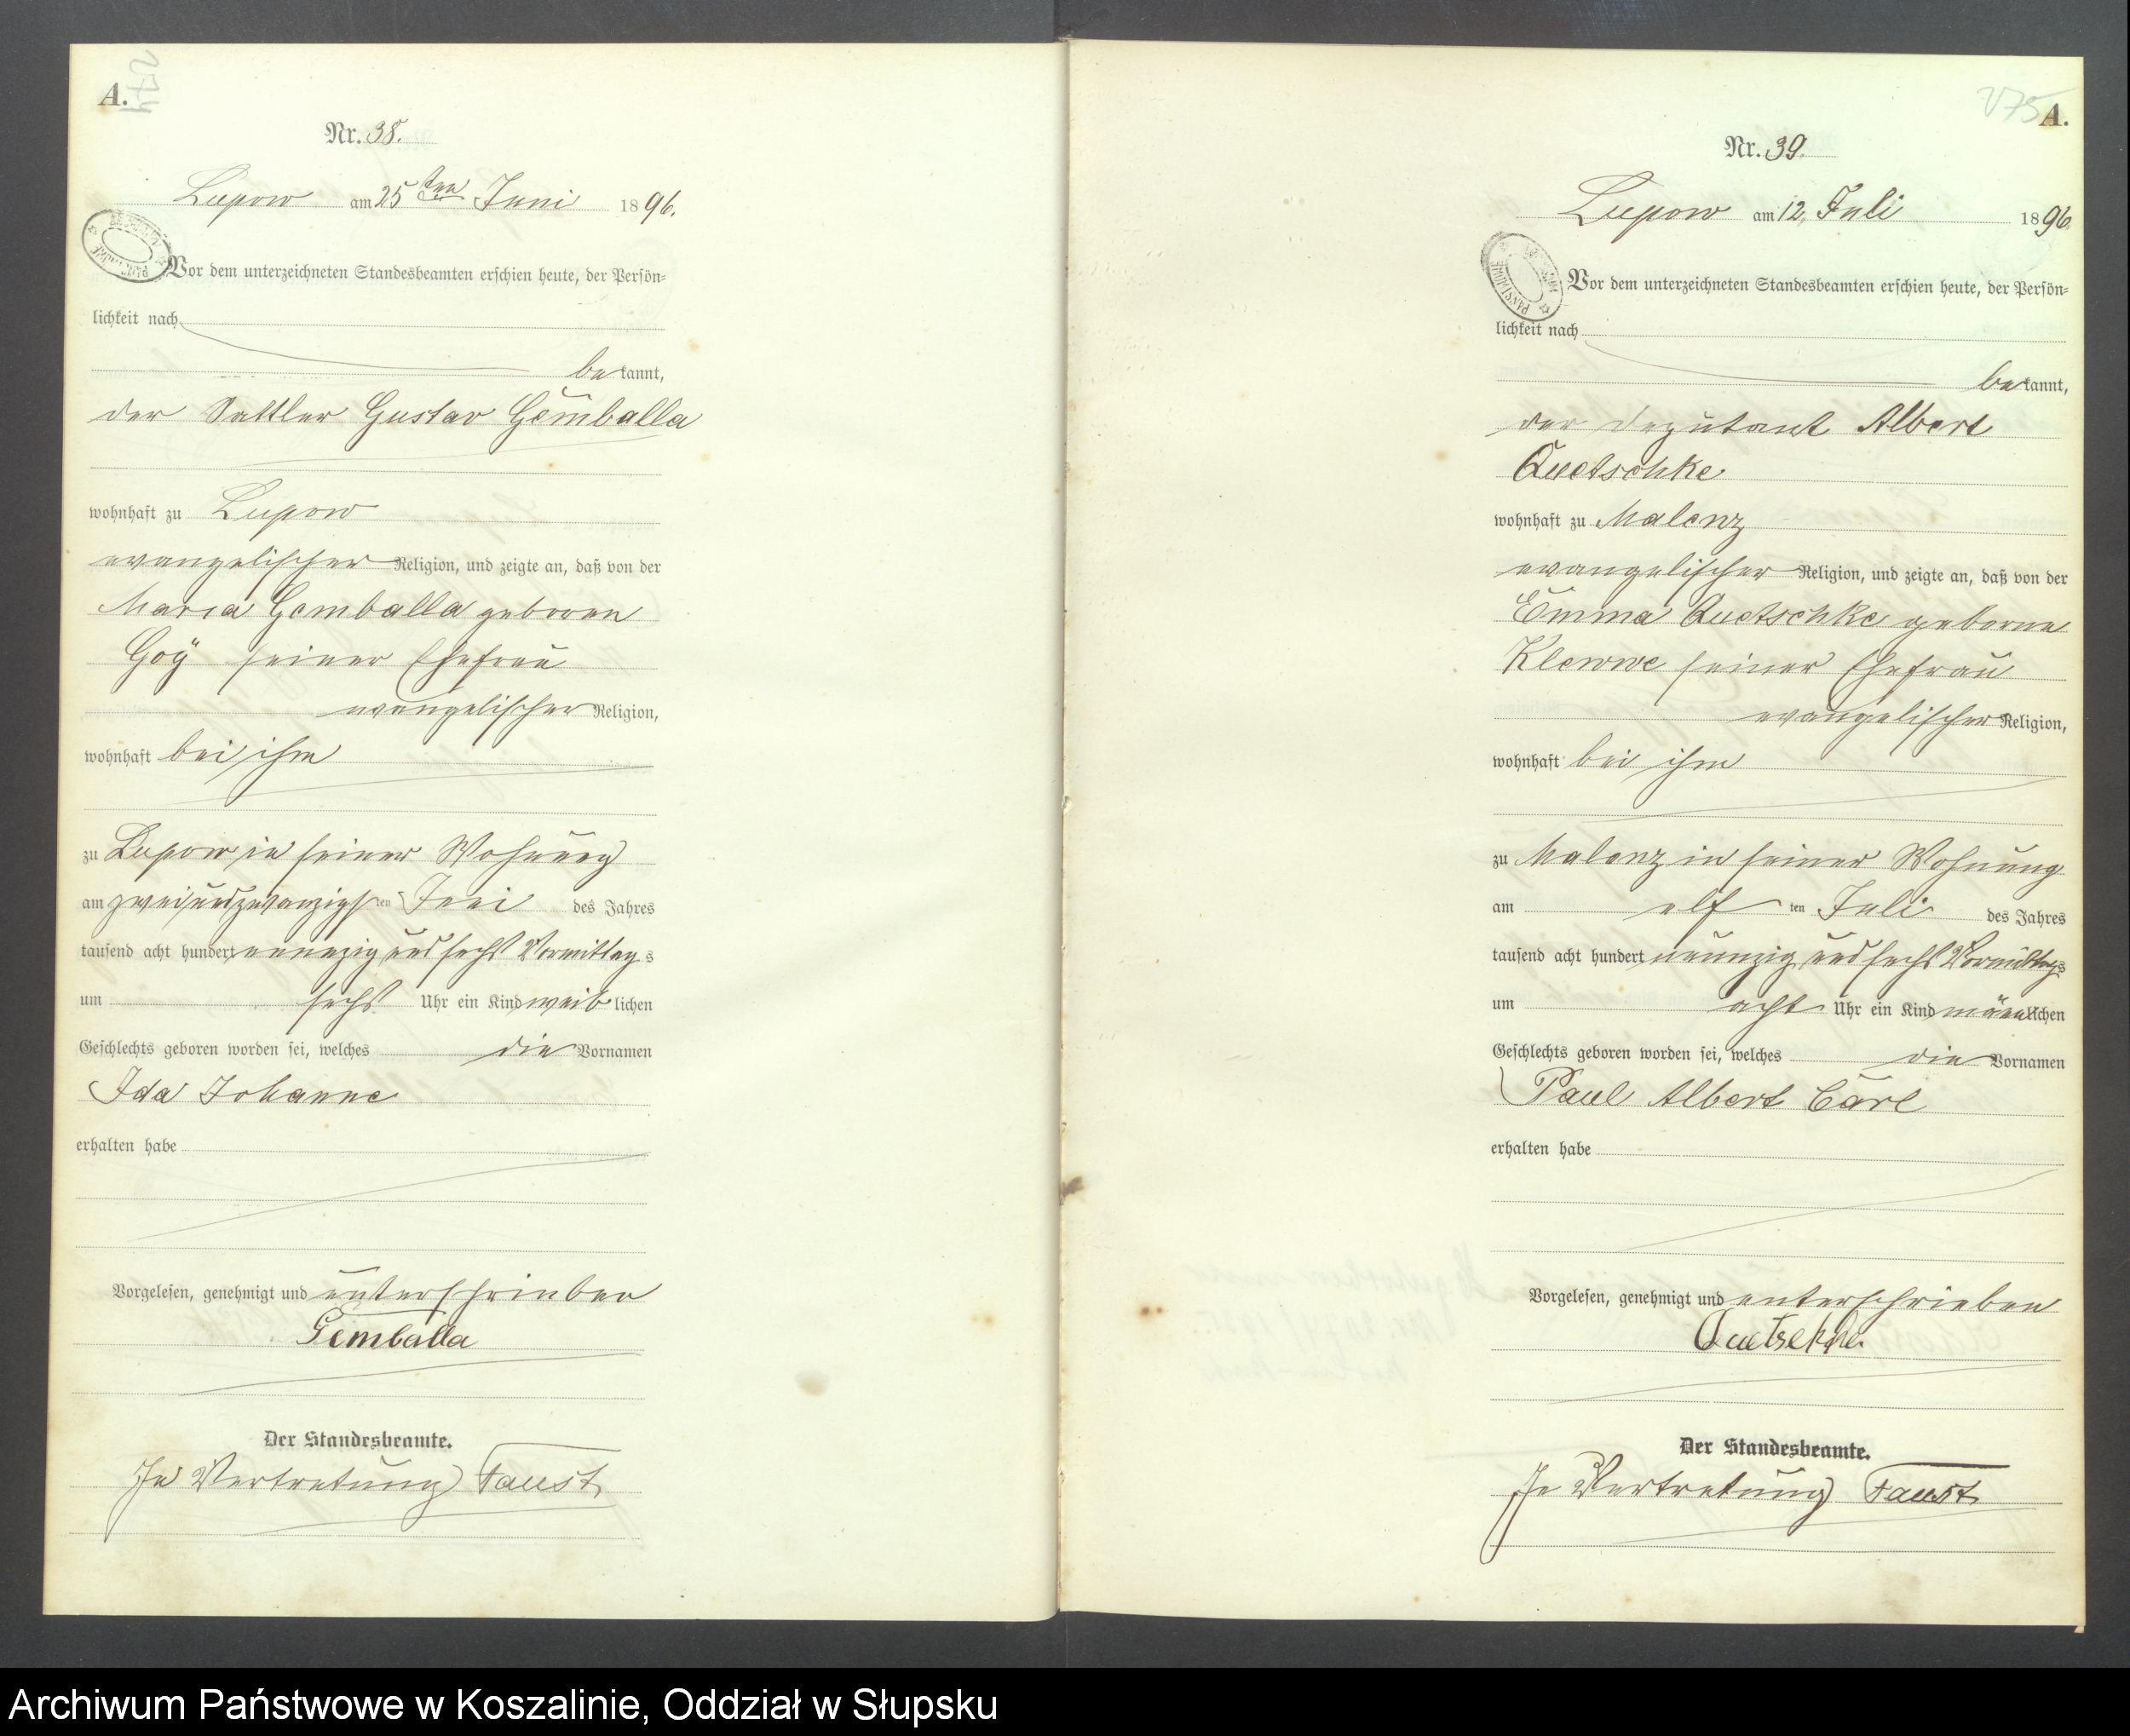 A.
Nr. 38.
Lupow am 25ten Juni 1896.
Vor dem unterzeichneten Standesbeamten erschien heute, der Persön-
lichkeit nach
bekannt,
der Sattler Gustav Gemballa
wohnhaft zu Lupow
evangelischer Religion, und zeigte an, daß von der
Maria Gemballa geboren
Goÿ seiner Ehefrau
evangelischer Religion,
wohnhaft bei ihm
zu Lupow in seiner Wohnung
am zweiundzwanzigsten Juni des Jahres
tausend acht hundert neunzig und sechs Vormittags
um sechs Uhr ein Kind weiblichen
Geschlechts geboren worden sei, welches die Vornamen
Ida Johanne
erhalten habe
Vorgelesen, genehmigt und unterschrieben
Gemballa
Der Standesbeamte.
In Vertretung Faust
275 A.
Nr. 39.
Lupow am 12. Juli 1896.
Vor dem unterzeichneten Standesbeamten erschien heute, der Persön-
lichkeit nach
bekannt,
der Deputant Albert
Quetschke
wohnhaft zu Malenz
evangelischer Religion, und zeigte an, daß von der
Emma Quetschke geborne
Klewwe seiner Ehefrau
evangelischer Religion,
wohnhaft bei ihm
zu Malenz in seiner Wohnung
am elften Juli des Jahres
tausend acht hundert neunzig und sechs Vormittags
um acht Uhr ein Kind männlichen
Geschlechts geboren worden sei, welches die Vornamen
Paul Albert Carl
erhalten habe
Vorgelesen, genehmigt und unterschrieben
Quetschke
Der Standesbeamte.
In Vertretung Faust
Archiwum Państwowe w Koszalinie, Oddział w Słupsku